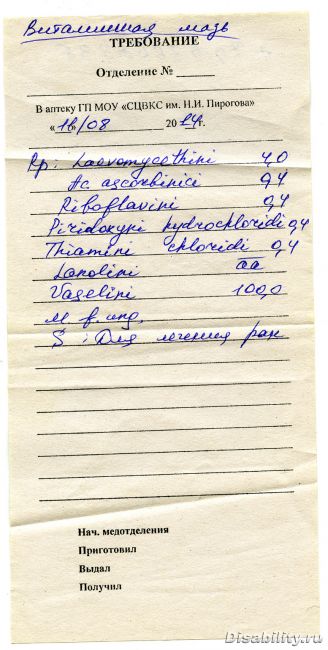 Витаминная мазь
ТРЕБОВАНИЕ
Отделение №
В аптеку ГП МОУ «СЦВКС им. Н.И. Пирогова»
«18»/08 2014г.
Rp: Laevomycethini 4,0
Ac ascorbinici 0,4
Riboflavini 0,4
Piridoxyni hydrochloridi 0,4
Thiamini chloridi 0,4
Lanolini aa
Vaselini 100,0
M. f. ung.
S: Для лечения ран
Нач. медотделения
Приготовил
Выдал
Получил
Disability.ru